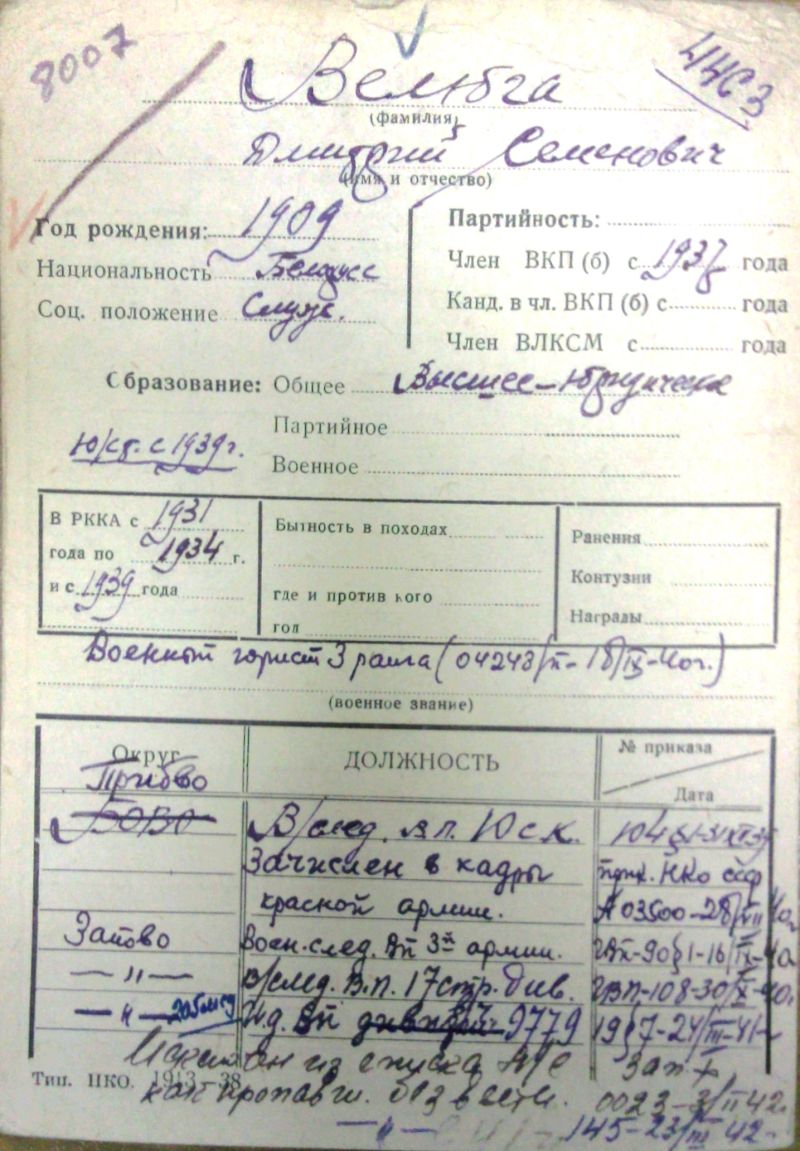 8007
4463
Велюга
(фамилия)
Дмитрий Семенович
(имя и отчество)
Год рождения: 1909
Партийность:
Национальность Белорусс
Член ВКП (б) с 1937 года
Соц. положение Служ.
Канд. в чл. ВКП (б) с года
Член ВЛКСМ с года
Образование: Общее Высшее-юридическа
Партийное
с 1939 г.
Военное
В РККА с 1931
года по 1934 г.
и с 1939 года
Бытность в походах
где и против кого
год
Ранения
Контузии
Награды
Военный юрист 3 ранга (04243/п-18/IX-40г.)
(военное звание)
Округ
ДОЛЖНОСТЬ
№ приказа
Дата
Прибово
БОВО
В/след. вп. Юск.
Зачислен в кадры
прик. НКО СССР
красной армии.
03500-28/VII 40г.
Запово Воен.след. Вп 3й армии. ГВп-90§1-16/IX-40
— " — В/след. В.п. 17 стр. див. ГВП-108-30/X-40г.
— " — И.д. Вп 9779 19§7-24/III-41
из списка как пропавш. без вести.
Тип. НКО. 1913-38
0023-3/II 42г.
— " — 145-23/III 42-